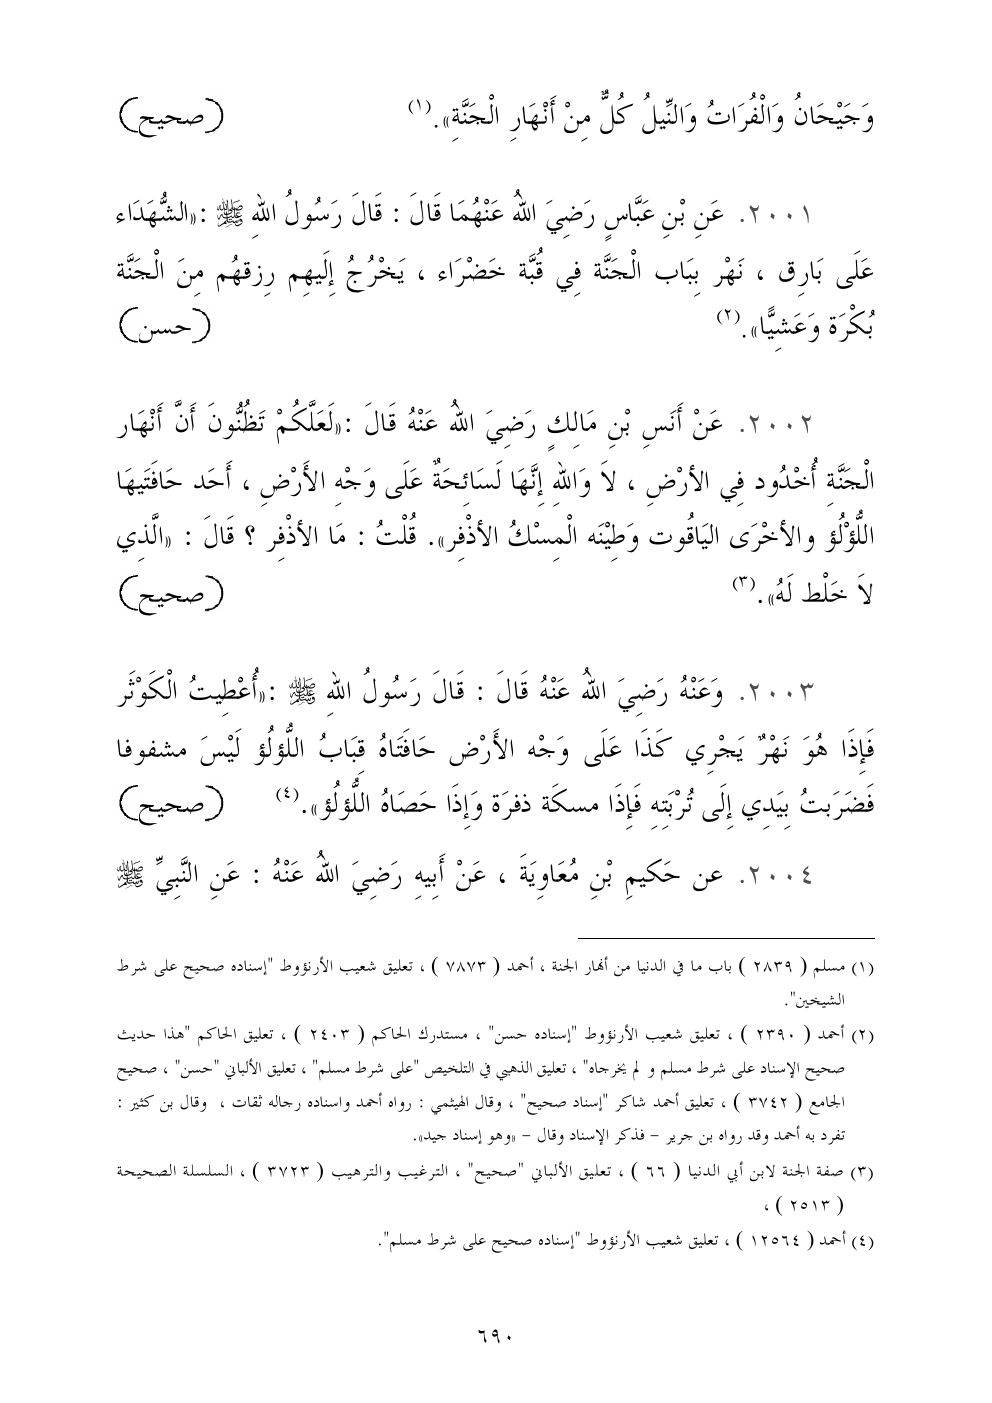 وَجَيْحَانُ وَالْفُرَاتُ وَالنِّيلُ كُلٌّ مِنْ أَنْهَارِ الْجَنَّةِ».(١) (صحيح)
٢٠٠١. عَنِ بْنِ عَبَّاسٍ رَضِيَ اللهُ عَنْهُمَا قَالَ : قَالَ رَسُولُ اللهِ ﷺ :«الشُّهَدَاء
عَلَى بَارِق ، نَهْر بِبَاب الْجَنَّة فِي قُبَّة خَضْرَاء ، يَخْرُجُ إِلَيهِم رِزقهُم مِنَ الْجَنَّة
بُكْرَة وَعَشِيًّا».(٢) (حسن)
٢٠٠٢. عَنْ أَنَسِ بْنِ مَالِكٍ رَضِيَ اللهُ عَنْهُ قَالَ :«لَعَلَّكُمْ تَظُنُّونَ أَنَّ أَنْهَار
الْجَنَّةِ أُخْدُود فِي الأرْضِ ، لاَ وَاللهِ إِنَّهَا لَسَائِحَةٌ عَلَى وَجْهِ الأَرْضِ ، أَحَد حَافَتَيهَا
اللُّؤْلُؤ والأخْرَى اليَاقُوت وَطِيْنَه الْمِسْكُ الأذْفِر». قُلْتُ : مَا الأذْفِر ؟ قَالَ : «الَّذِي
لاَ خَلْط لَهُ».(٣) (صحيح)
٢٠٠٣. وَعَنْهُ رَضِيَ اللهُ عَنْهُ قَالَ : قَالَ رَسُولُ اللهِ ﷺ :«أُعْطِيتُ الْكَوْثَر
فَإِذَا هُوَ نَهْرٌ يَجْرِي كَذَا عَلَى وَجْه الأَرْض حَافَتَاهُ قِبَابُ اللُّؤلُؤ لَيْسَ مشفوفا
فَضَرَبتُ بِيَدِي إِلَى تُرْبَتِهِ فَإِذَا مسكَة ذفرَة وَإِذَا حَصَاهُ اللُّؤلُؤ».(٤) (صحيح)
٢٠٠٤. عن حَكيمِ بْنِ مُعَاوِيَةَ ، عَنْ أَبِيهِ رَضِيَ اللهُ عَنْهُ : عَنِ النَّبِيِّ ﷺ
(١) مسلم ( ٢٨٣٩ ) باب ما في الدنيا من أنهار الجنة ، أحمد ( ٧٨٧٣ ) ، تعليق شعيب الأرنؤوط "إسناده صحيح على شرط
الشيخين".
(٢) أحمد ( ٢٣٩٠ ) ، تعليق شعيب الأرنؤوط "إسناده حسن" ، مستدرك الحاكم ( ٢٤٠٣ ) ، تعليق الحاكم "هذا حديث
صحيح الإسناد على شرط مسلم و لم يخرجاه" ، تعليق الذهبي في التلخيص "على شرط مسلم" ، تعليق الألباني "حسن" ، صحيح
الجامع ( ٣٧٤٢ ) ، تعليق أحمد شاكر "إسناد صحيح" ، وقال الهيثمي : رواه أحمد واسناده رجاله ثقات ، وقال بن كثير :
تفرد به أحمد وقد رواه بن جرير – فذكر الإسناد وقال – «وهو إسناد جيد».
(٣) صفة الجنة لابن أبي الدنيا ( ٦٦ ) ، تعليق الألباني "صحيح" ، الترغيب والترهيب ( ٣٧٢٣ ) ، السلسلة الصحيحة
( ٢٥١٣ ) ،
(٤) أحمد ( ١٢٥٦٤ ) ، تعليق شعيب الأرنؤوط "إسناده صحيح على شرط مسلم".
٦٩٠